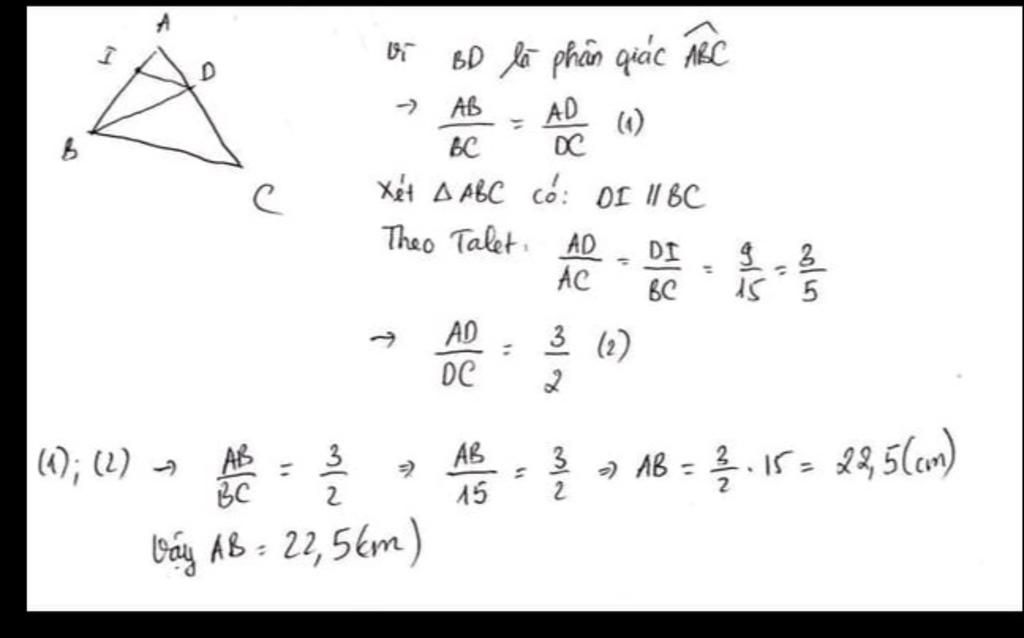 A
I
D
B
C
Vì BD là phân giác \widehat{ABC}
→ AB/BC = AD/DC (1)
Xét △ABC có: DI // BC
Theo Talet: AD/AC = DI/BC = 9/15 = 3/5
→ AD/DC = 3/2 (2)
(1); (2) → AB/BC = 3/2 ⇒ AB/15 = 3/2 ⇒ AB = 3/2 . 15 = 22,5 (cm)
Vậy AB = 22,5 (cm)